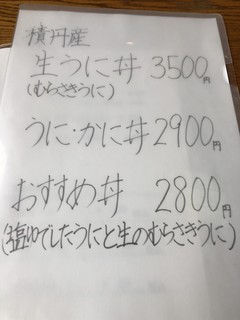 積丹産
生うに丼 3500円
(むらさきうに)
うに・かに丼 2900円
おすすめ丼 2800円
(塩ゆでしたうにと生のむらさきうに)